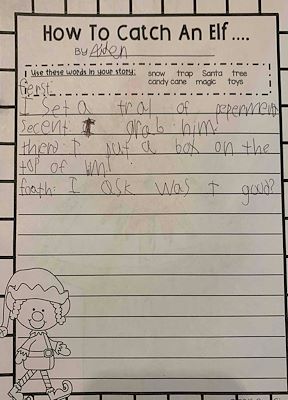 How To Catch An Elf ....
By Aiden
Use these words in your story: snow trap Santa tree
candy cane magic toys
ferst
I set a tral of peperment
secent I grab him
therd I put a box on the
top of him!
foath: I ask was I good?